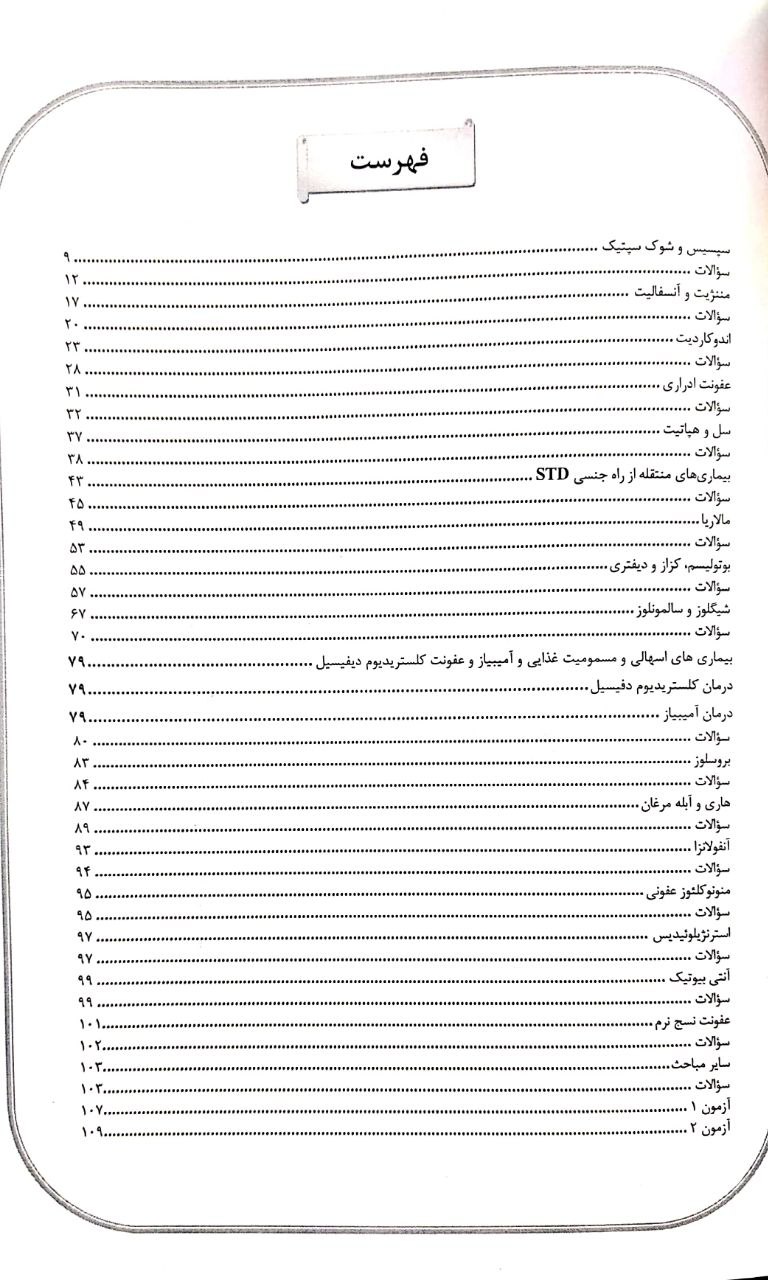 فهرست
سپسیس و شوک سپتیک ... ۹
سؤالات ... ۱۲
مننژیت و آنسفالیت ... ۱۷
سؤالات ... ۲۰
اندوکاردیت ... ۲۳
سؤالات ... ۲۸
عفونت ادراری ... ۳۱
سؤالات ... ۳۲
سل و هپاتیت ... ۳۷
سؤالات ... ۳۸
بیماری‌های منتقله از راه جنسی STD ... ۴۳
سؤالات ... ۴۵
مالاریا ... ۴۹
سؤالات ... ۵۳
بوتولیسم، کزاز و دیفتری ... ۵۵
سؤالات ... ۵۷
شیگلوز و سالمونلوز ... ۶۷
سؤالات ... ۷۰
بیماری های اسهالی و مسمومیت غذایی و آمیبیاز و عفونت کلستریدیوم دیفیسیل ... ۷۹
درمان کلستریدیوم دفیسیل ... ۷۹
درمان آمیبیاز ... ۷۹
سؤالات ... ۸۰
بروسلوز ... ۸۳
سؤالات ... ۸۴
هاری و آبله مرغان ... ۸۷
سؤالات ... ۸۹
آنفولانزا ... ۹۳
سؤالات ... ۹۴
منونوکلئوز عفونی ... ۹۵
سؤالات ... ۹۵
استرنژیلوئیدیس ... ۹۷
سؤالات ... ۹۷
آنتی بیوتیک ... ۹۹
سؤالات ... ۹۹
عفونت نسج نرم ... ۱۰۱
سؤالات ... ۱۰۲
سایر مباحث ... ۱۰۳
سؤالات ... ۱۰۳
آزمون ۱ ... ۱۰۷
آزمون ۲ ... ۱۰۹